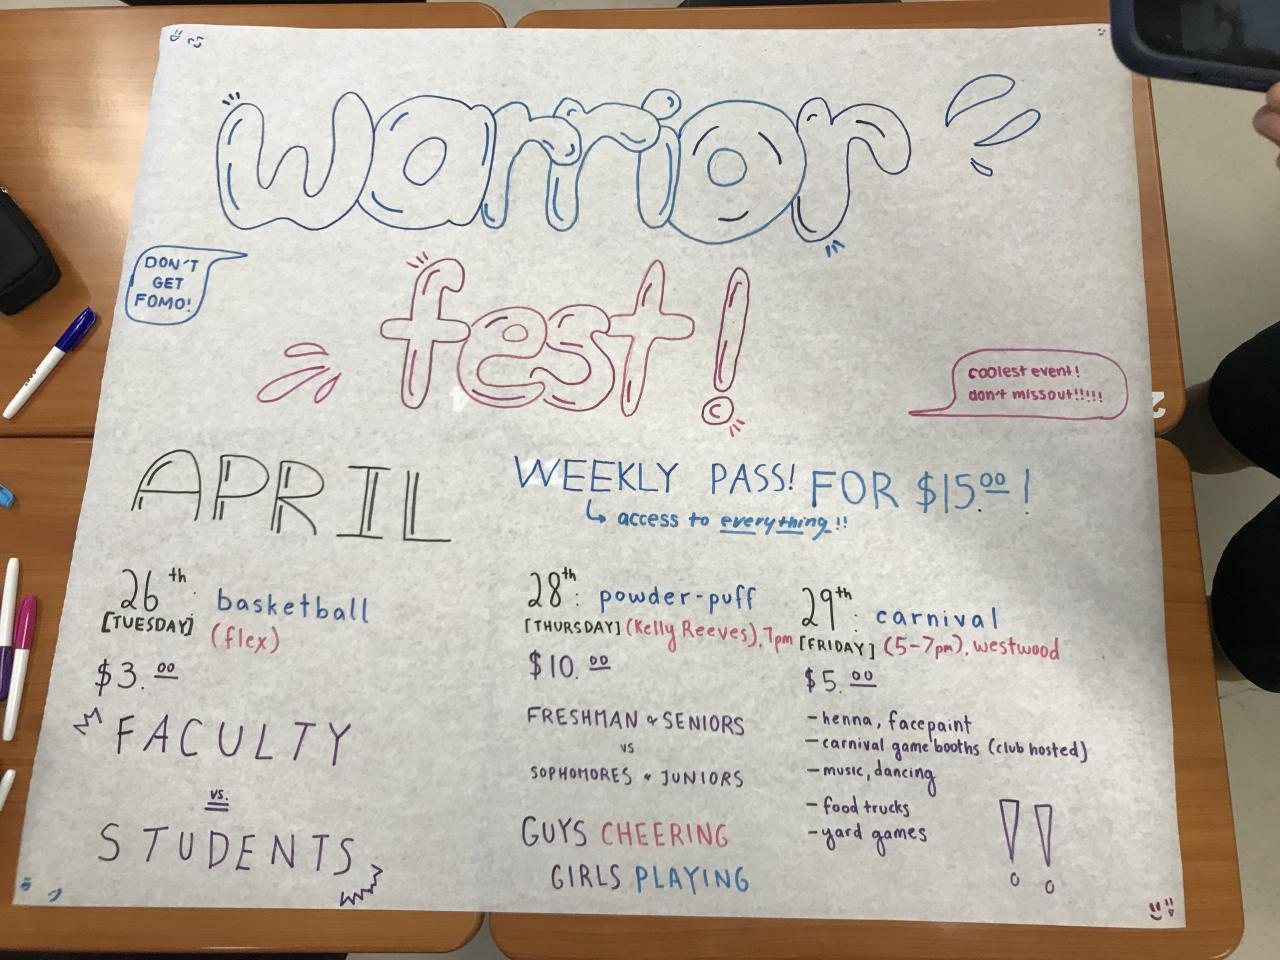 warrior
fest!
DON'T
GET
FOMO!
coolest event!
don't missout!!!!!
APRIL
WEEKLY PASS! FOR $15.00!
↳ access to everything!!
26th:
[TUESDAY]
basketball
(flex)
$3.00
FACULTY
VS.
STUDENTS
28th: powder-puff
[THURSDAY] (Kelly Reeves), 7pm
$10.00
FRESHMAN & SENIORS
VS
SOPHOMORES & JUNIORS
GUYS CHEERING
GIRLS PLAYING
29th: carnival
[FRIDAY] (5-7pm), westwood
$5.00
- henna, facepaint
- carnival game booths (club hosted)
- music, dancing
- food trucks
- yard games
!!
2